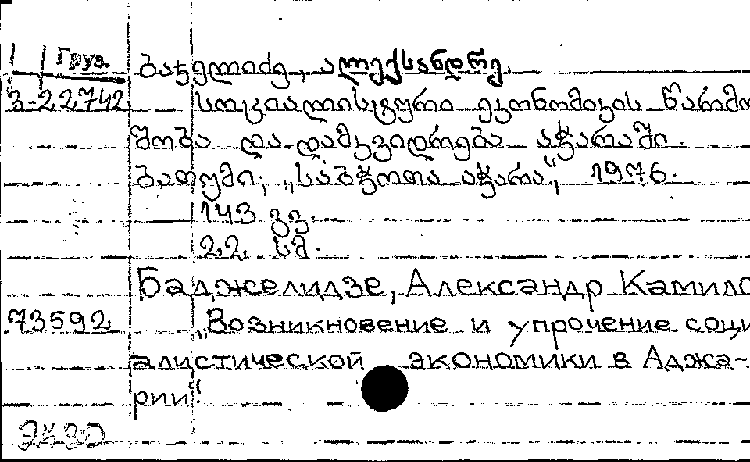 Груз.
ბაჯელიძე, ალექსანდრე
3-22742 სოციალისტური ეკონომიკის წარმო
შობა და დამკვიდრება აჭარაში.
ბათუმი, „საბჭოთა აჭარა", 1976.
143 გვ.
22 სმ.
Баджелидзе, Александр Камило
73592 „Возникновение и упрочение соци
алистической экономики в Аджа-
рии"